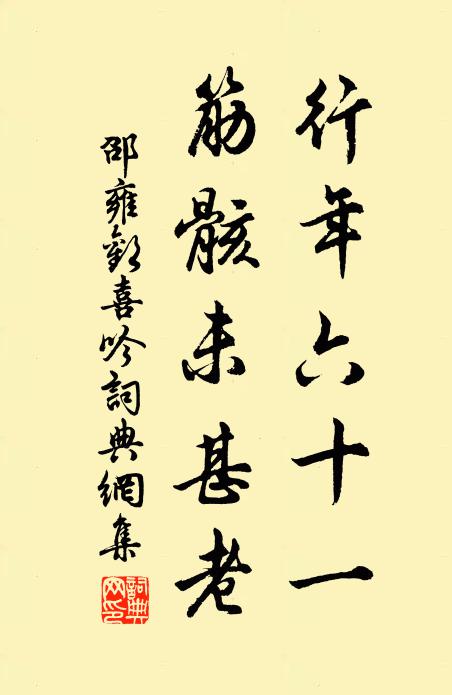 行年六十一
筋骸未甚老
邵雍歡喜吟詞典網集
詞典网印